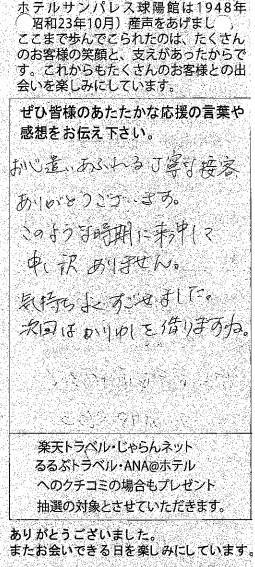 ホテルサンパレス球陽館は1948年
昭和23年10月）産声をあげまし
ここまで歩んでこられたのは、たくさん
のお客様の笑顔と、支えがあったからで
す。これからもたくさんのお客様との出
会いを楽しみにしています。
ぜひ皆様のあたたかな応援の言葉や
感想をお伝え下さい。
お心遣いあふれる丁寧な接客
ありがとうございます。
このような時期に来沖して
申し訳ありません。
気持ちよくすごせました。
次回はかりゆしを借りますね。
楽天トラベル・じゃらんネット
るるぶトラベル・ANA@ホテル
へのクチコミの場合もプレゼント
抽選の対象とさせていただきます。
ありがとうございました。
またお会いできる日を楽しみにしています。